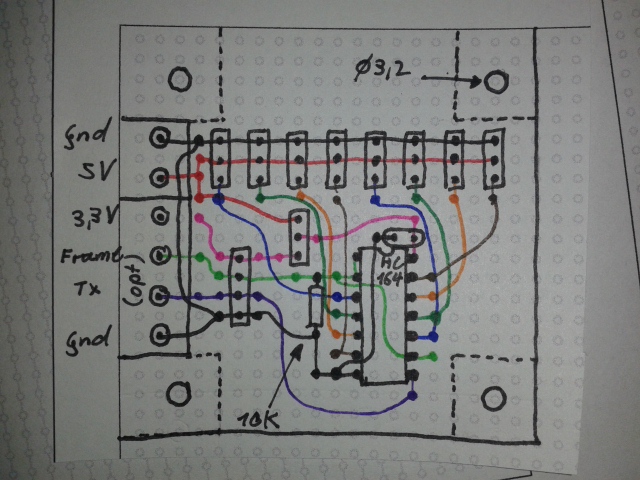 Ø3,2
Gnd
5V
3,3V
Frame
(opt)
Tx
Gnd
HC
164
10K